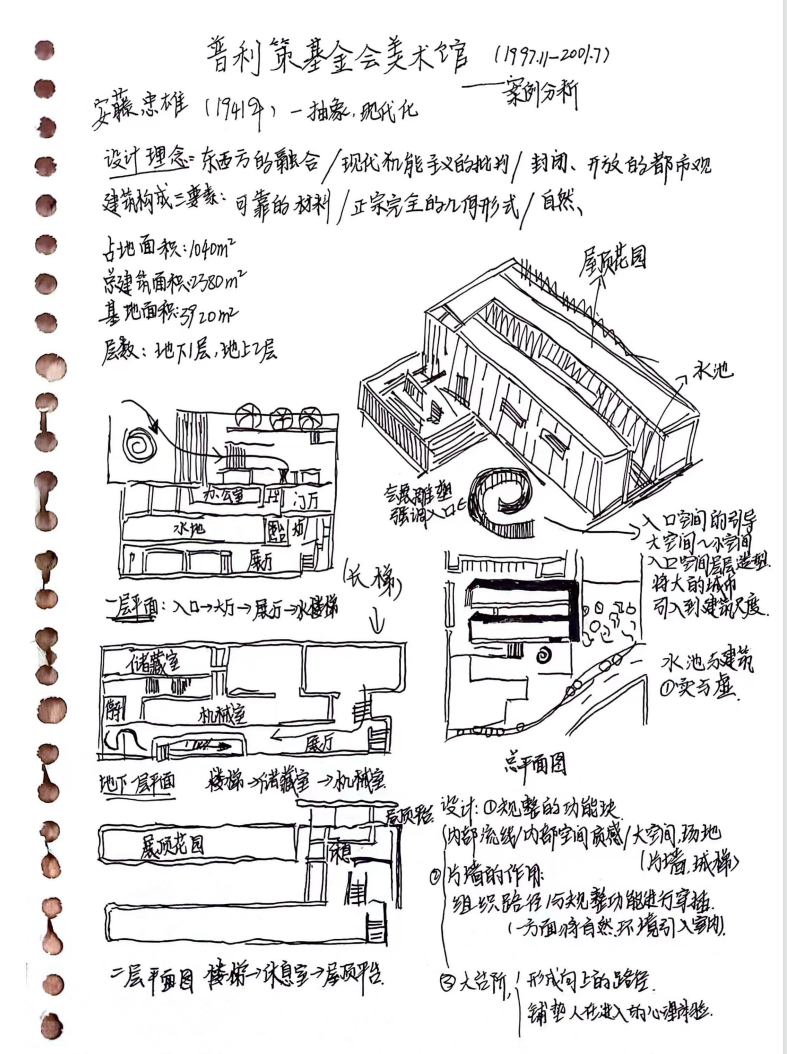 普利策基金会美术馆 (1997.11-2001.7)
——案例分析
安藤忠雄 (1941年) — 抽象、现代化
设计理念: 东西方的融合/现代机能主义的批判/封闭、开放的都市观
建筑构成三要素: 可靠的材料/正宗完全的几何形式/自然、
占地面积: 1040m²
总建筑面积: 2380m²
基地面积: 3920m²
层数: 地下1层, 地上2层
屋顶花园
水池
办公室
门厅
水池
展厅
一层平面: 入口→大厅→展厅→水楼梯
(长梯)
强调入口
入口空间的引导
大空间~小空间
入口空间层层造型.
将大的城市
引入到建筑尺度.
水池与建筑
①实与虚.
总平面图
储藏室
机械室
展厅
地下一层平面 楼梯→储藏室→机械室
屋顶平台
屋顶花园
休息
二层平面图 楼梯→休息室→屋顶平台.
设计: ①规整的功能块
(内部流线/内部空间质感/大空间,场地
(片墙,城梯)
②片墙的作用:
组织路径/与规整功能进行穿插.
(一方面将自然环境引入室内).
③大台阶, 形成向上的路径.
铺垫人在进入的心理体验.